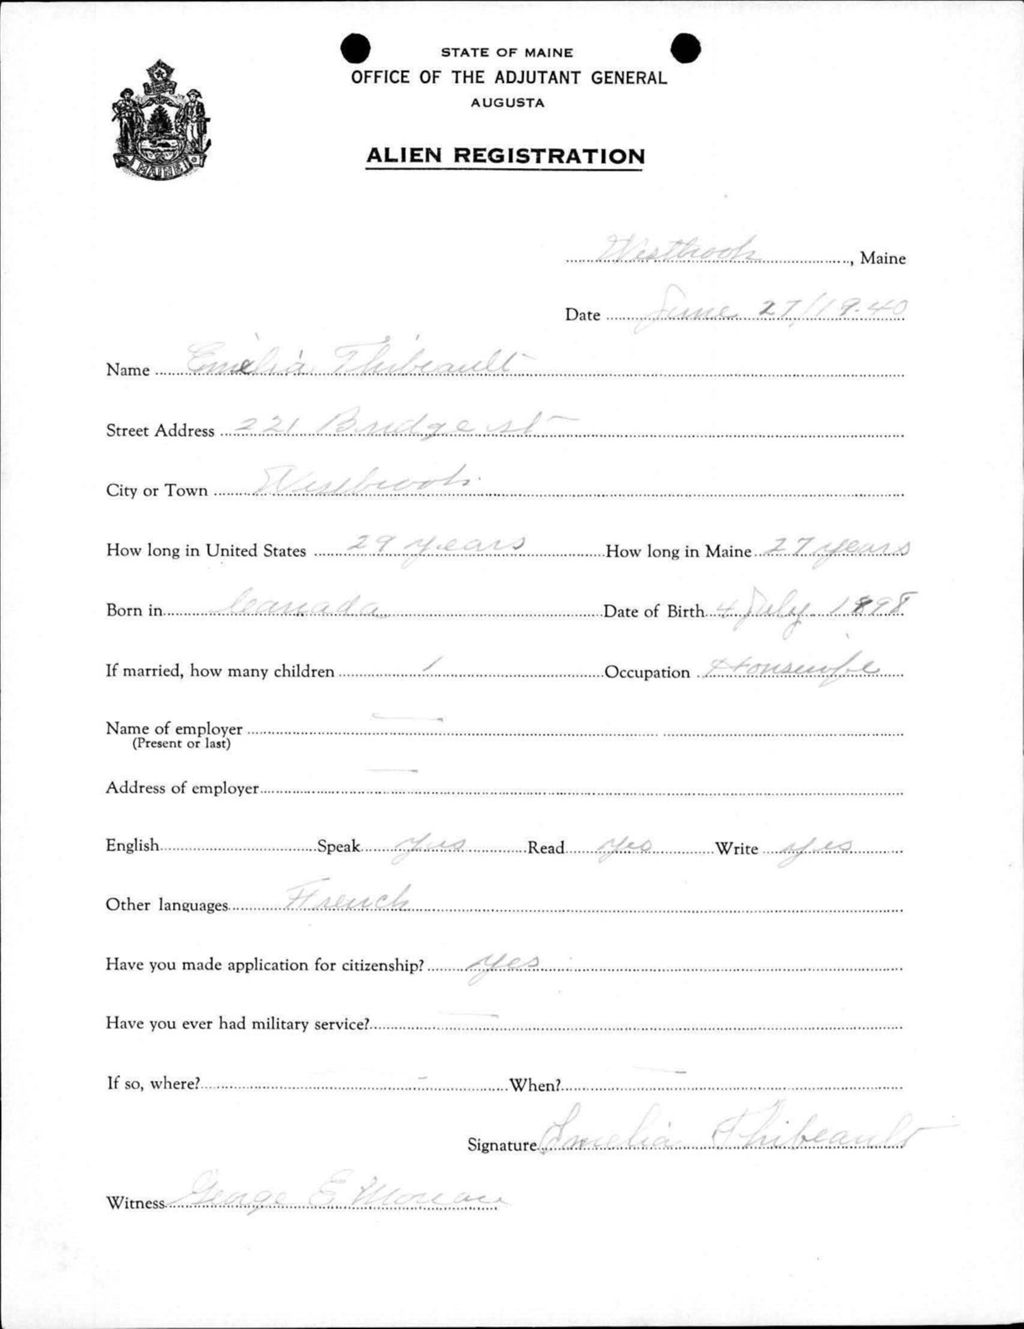 STATE OF MAINE
OFFICE OF THE ADJUTANT GENERAL
AUGUSTA
ALIEN REGISTRATION
MAINE
Westbrook, Maine
Date June 27/19.40
Name Emelia Thibeault
Street Address 221 Bridge st
City or Town Westbrook
How long in United States 29 years How long in Maine 27 years
Born in Canada Date of Birth 4 July 1898
If married, how many children 1 Occupation Housewife
Name of employer —
(Present or last)
Address of employer —
English Speak yes Read yes Write yes
Other languages French
Have you made application for citizenship? yes
Have you ever had military service? —
If so, where? - When? -
Signature Emelia Thibeault
Witness George E